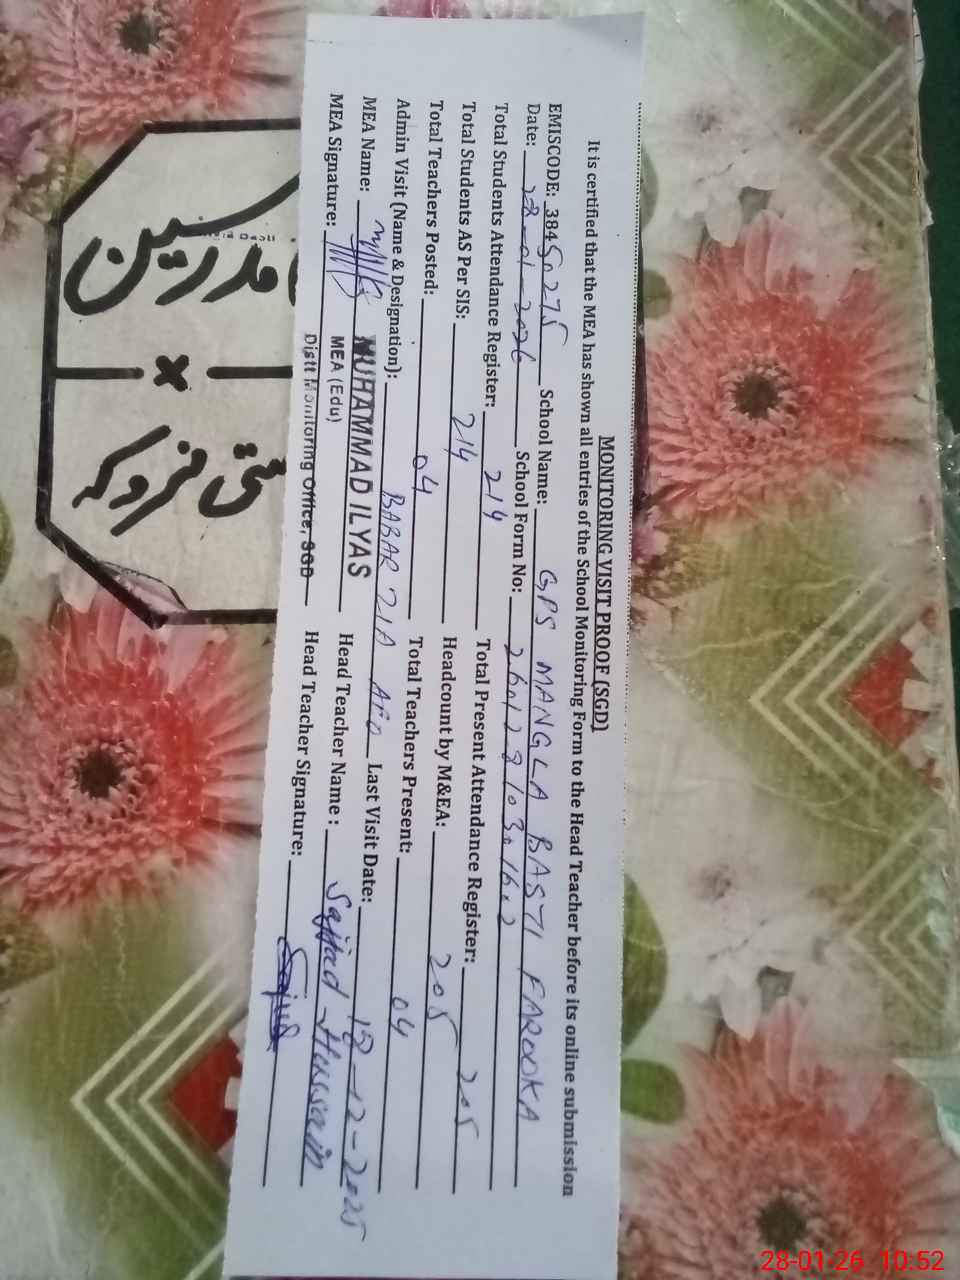 MONITORING VISIT PROOF (SGD)
It is certified that the MEA has shown all entries of the School Monitoring Form to the Head Teacher before its online submission
EMISCODE: 38450275 School Name: GPS MANGLA BASTI FAROOKA
Date: 28-01-2026 School Form No: 
Total Students Attendance Register: 214 Total Present Attendance Register: 205
Total Students AS Per SIS: 214 Headcount by M&EA: 205
Total Teachers Posted: 04 Total Teachers Present: 04
Admin Visit (Name & Designation): BABAR ZIA AEO Last Visit Date: 18-12-2025
MEA Name: MUHAMMAD ILYAS Head Teacher Name: Sajjad Hussain
MEA (Edu)
MEA Signature: Distt Monitoring Office, SGD Head Teacher Signature: Sajjad
مدرسین
×
فروکہ
28-01-26 10:52